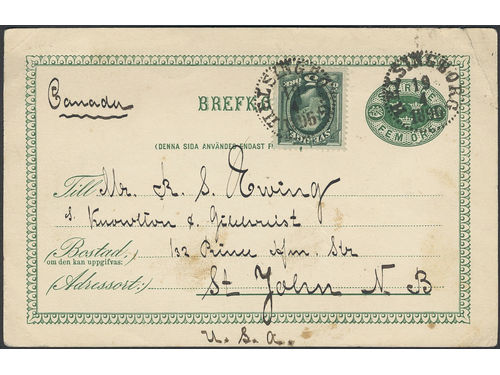 HELSINGBORG
Canada
BREFK
FEM ÖRE
SVERIGE
(DENNA SIDA ANVÄNDES ENDAST F
Till Mr. R. S. Ewing
Knowlton & Gilchrist
Bostad: 132 Prince Wm. Str
om den kan uppgifvas:
Adressort: St John N B
U. S. A.